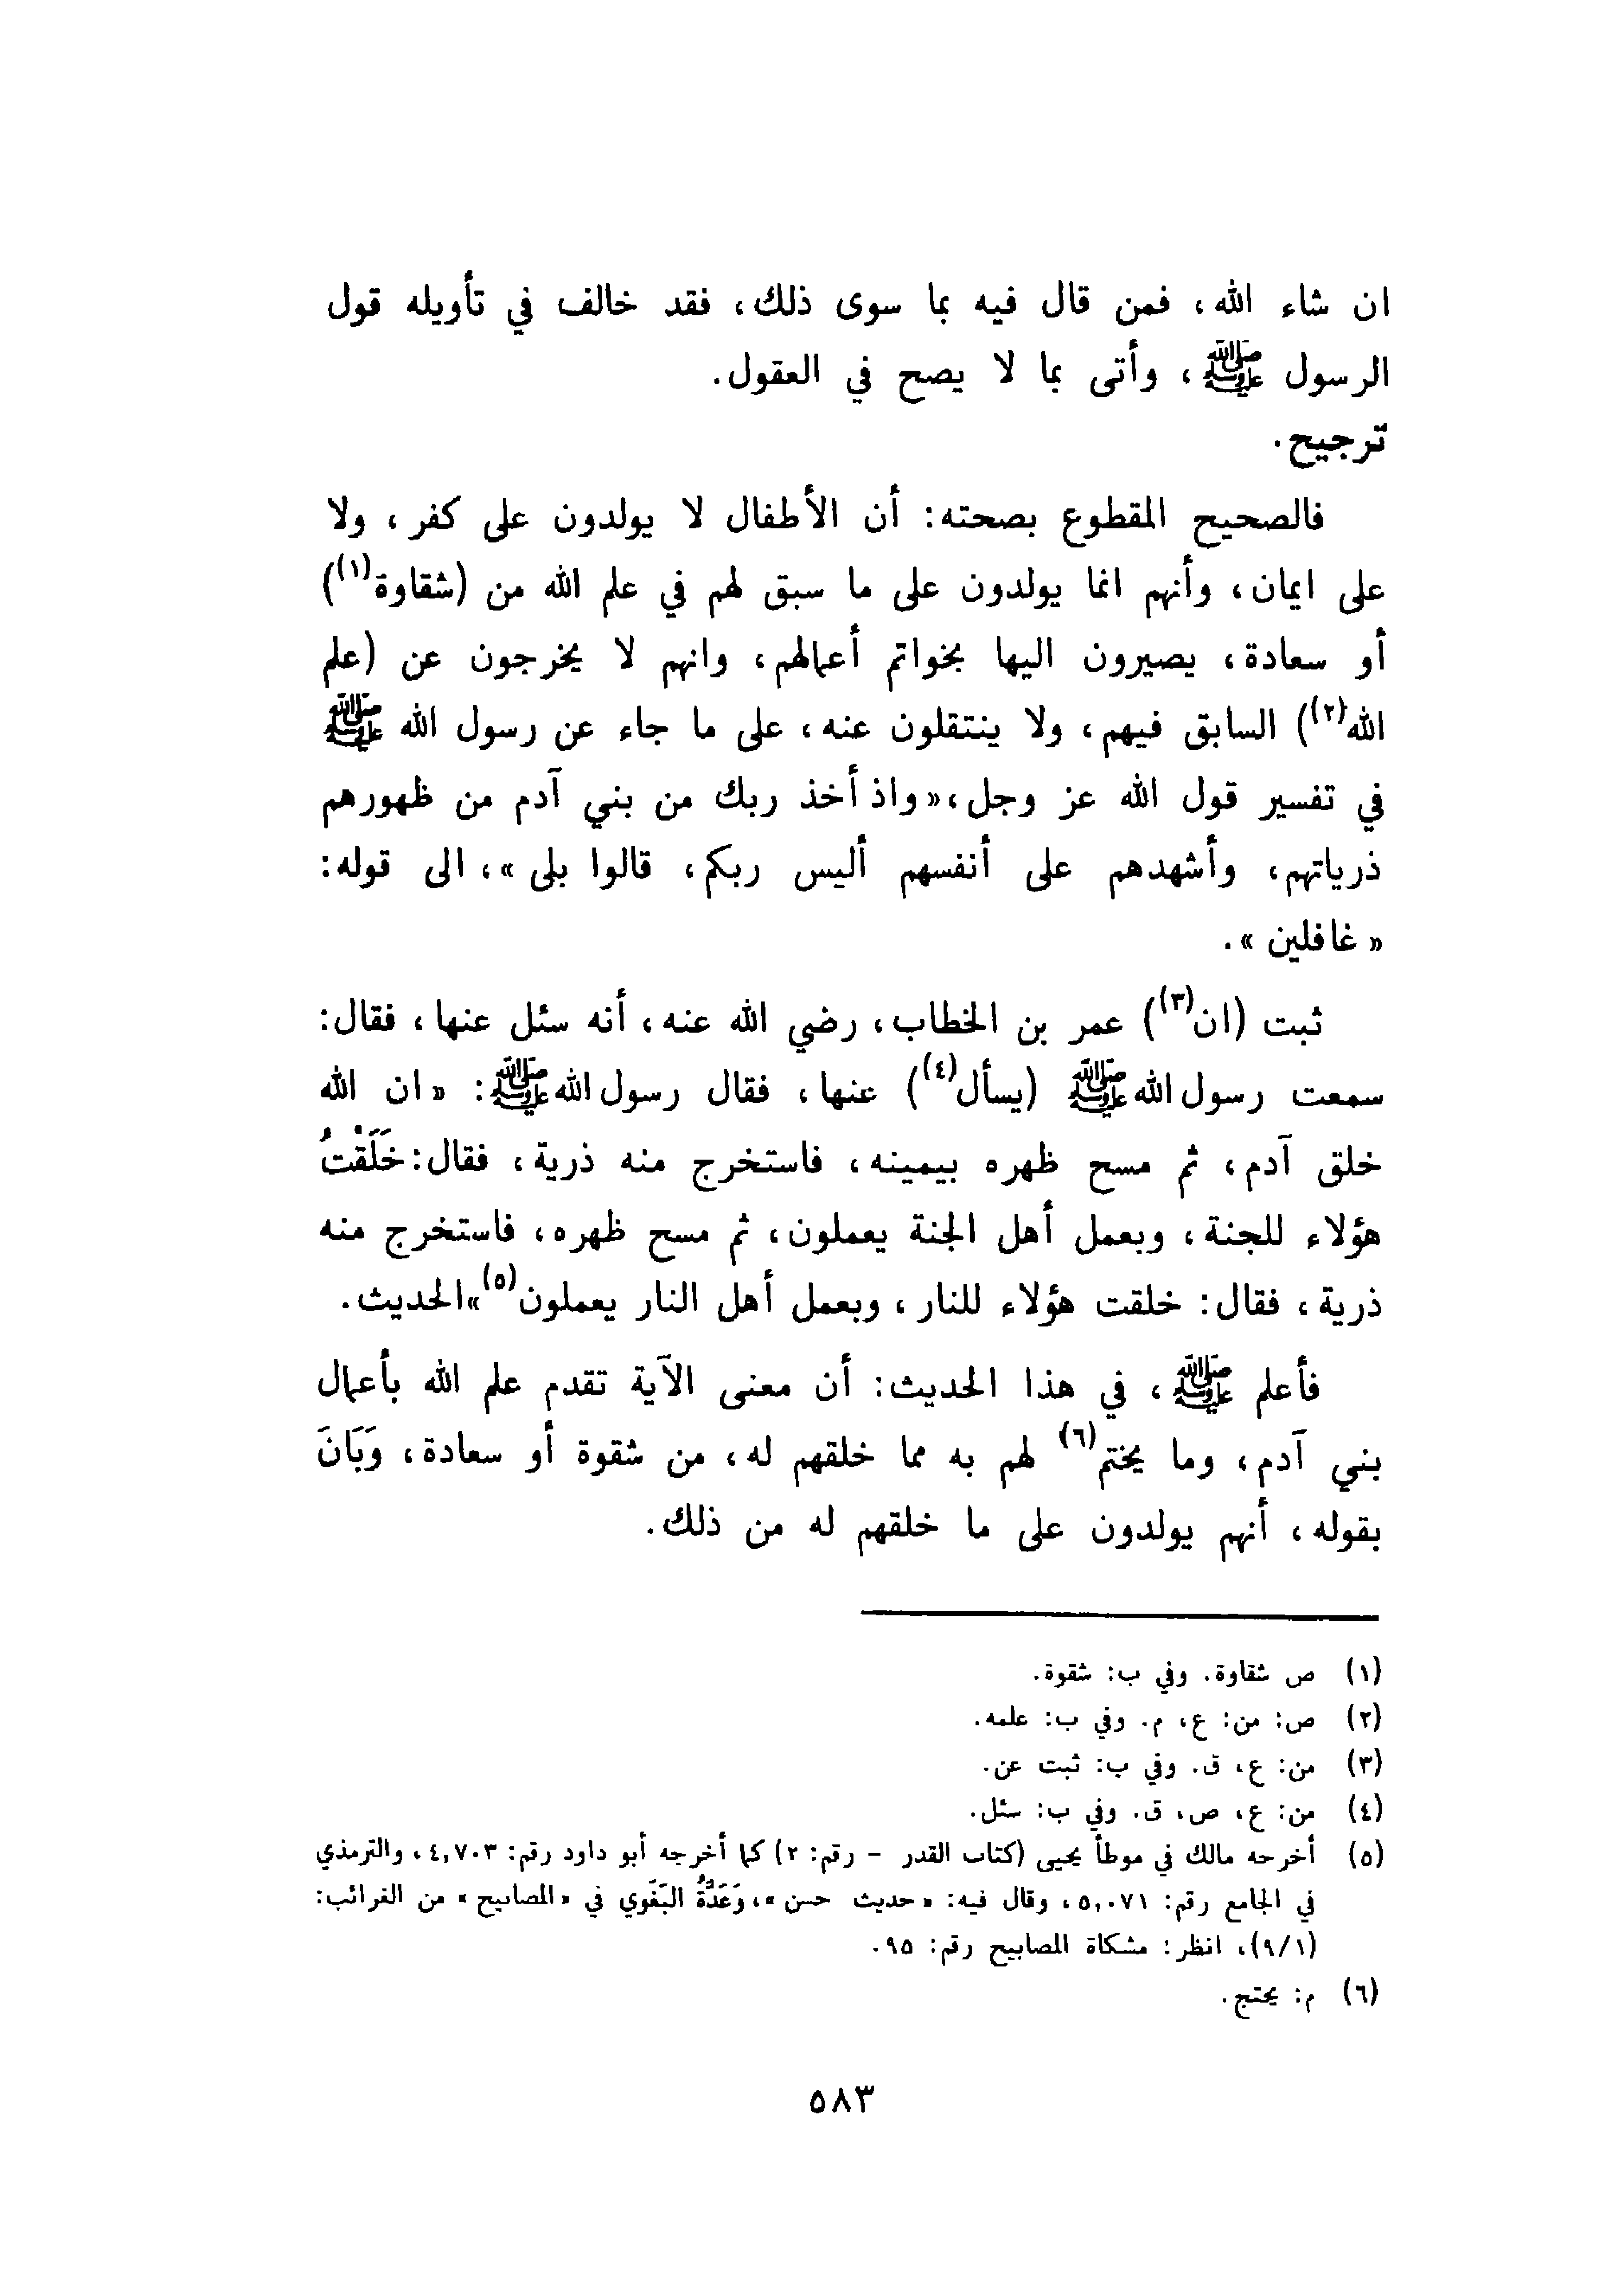 ان شاء الله، فمن قال فيه بما سوى ذلك، فقد خالف في تأويله قول
الرسول ﷺ، وأتى بما لا يصح في العقول.
ترجيح.
فالصحيح المقطوع بصحته: أن الأطفال لا يولدون على كفر، ولا
على ايمان، وأنهم انما يولدون على ما سبق لهم في علم الله من (شقاوة(١))
أو سعادة، يصيرون اليها بخواتم أعمالهم، وانهم لا يخرجون عن (علم
الله(٢)) السابق فيهم، ولا ينتقلون عنه، على ما جاء عن رسول الله ﷺ
في تفسير قول الله عز وجل، «واذ أخذ ربك من بني آدم من ظهورهم
ذرياتهم، وأشهدهم على أنفسهم أليس ربكم، قالوا بلى»، الى قوله:
«غافلين».
ثبت (ان(٣)) عمر بن الخطاب، رضي الله عنه، أنه سئل عنها، فقال:
سمعت رسول الله ﷺ (يسأل(٤)) عنها، فقال رسول الله ﷺ: «ان الله
خلق آدم، ثم مسح ظهره بيمينه، فاستخرج منه ذرية، فقال: خَلَقْتُ
هؤلاء للجنة، وبعمل أهل الجنة يعملون، ثم مسح ظهره، فاستخرج منه
ذرية، فقال: خلقت هؤلاء للنار، وبعمل أهل النار يعملون(٥)» الحديث.
فأعلم ﷺ، في هذا الحديث: أن معنى الآية تقدم علم الله بأعمال
بني آدم، وما يختم(٦) لهم به مما خلقهم له، من شقوة أو سعادة، وَبَانَ
بقوله، أنهم يولدون على ما خلقهم له من ذلك.
(١) ص شقاوة. وفي ب: شقوة.
(٢) ص: من: ع، م. وفي ب: علمه.
(٣) من: ع، ق. وفي ب: ثبت عن.
(٤) من: ع، ص، ق. وفي ب: سئل.
(٥) أخرجه مالك في موطأ يحيى (كتاب القدر - رقم: ٢) كما أخرجه أبو داود رقم: ٤,٧٠٣، والترمذي
في الجامع رقم: ٥,٠٧١، وقال فيه: «حديث حسن»، وَعَدَّهُ البَغَوي في «المصابيح» من الغرائب:
(٩/١)، انظر: مشكاة المصابيح رقم: ٩٥.
(٦) م: يحتج.
٥٨٣